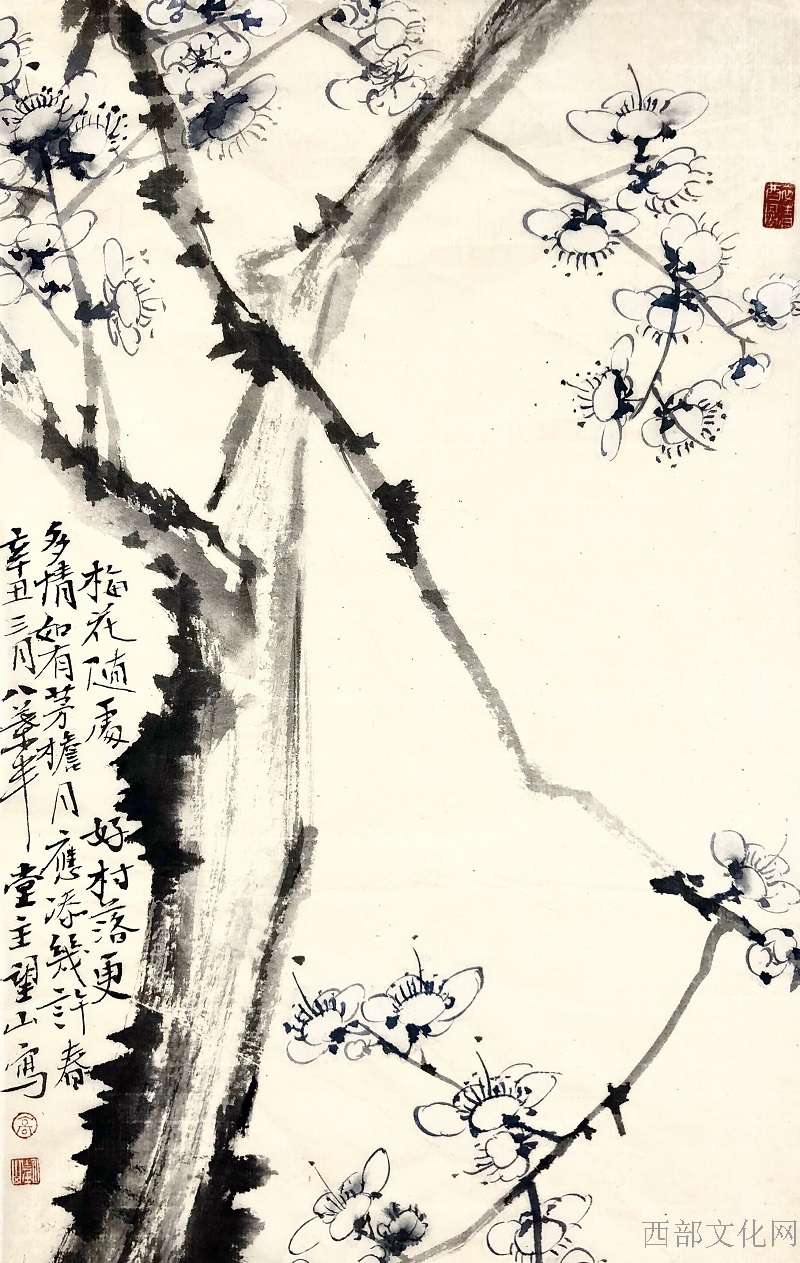 梅花随處好村落更
多情如有茅檐月應添幾許春
辛丑三月半堂主望山寫
高
西部文化网